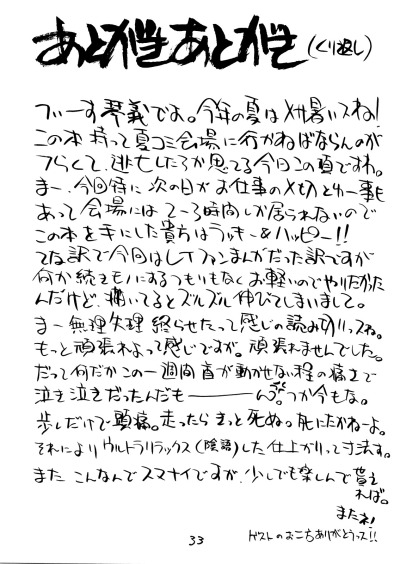 あとがきあとがき(くり返し)
つぃーす琴義でよ。今年の夏はメサ暑いスね!
この本持って夏コミ会場に行かねばならんのが
フらくて、逃亡したろか思てる今日この頃ですわ。
まー、今回特に次の日がお仕事の〆切とゆー事も
あって会場には2〜3時間しか居られないので
この本を手にした貴方はラッキー&ハッピー!!
てな訳で今回はLTファンまんがだった訳ですが
何か続きモノにするつもりもなくお軽いのでやりたかった
んだけど、描いてるとズルズル伸びてしまいまして。
まー無理矢理終らせたって感じの読み切りっスね。
もっと頑張れよって感じですが。頑張れませんでした。
だって何だかこの一週間首が動かせない程の痛さで
泣き泣きだったんだも―――ん。つか今もな。
歩しだけで頭痛。走ったらきっと死ぬ。死にたかねーよ。
それによりウルトラリラックス(陰語)した仕上がりって寸法す。
またこんなんでスマナイですが、少しでも楽しんで貰え
れば。
またネ!
ゲストのお二方ありがとうっス!!
33